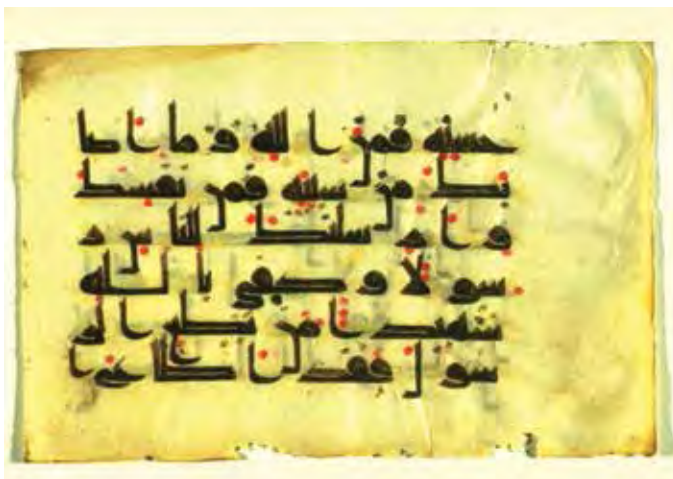 حسنة فمن الله وما اصا
بك من سيئة فمن نفسك
وارسلنك للناس ر
سولا وكفى بالله
شهيدا من يطع الر
سول فقد اطاع ا